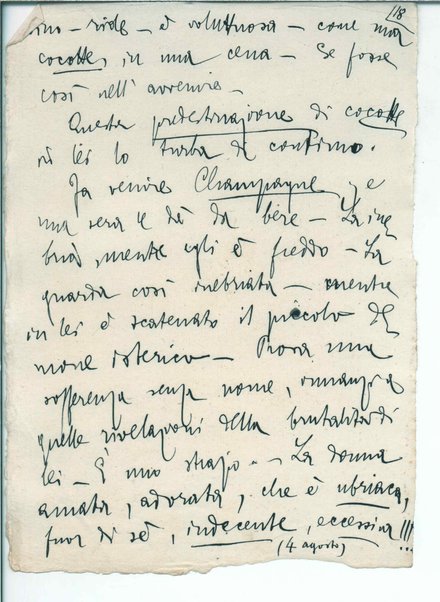 18
ino - ride - è voluttuosa - come una
cocotte, in una cena - Se fosse
così nell' avvenire -
Questa predestinazione di cocotte
in lei lo turba di continuo.
Fa venire Champagne, e
una sera le dà da bere - La ine
bria, mentre egli è freddo - La
guarda così inebriata - mentre
in lei è scatenato il piccolo de
mone isterico - Prova una
sofferenza senza nome, innanzi a
quelle rivelazioni della brutalità di
lei - È uno strazio - La donna
amata, adorata, che è ubriaca,
fuor di sé, indecente, eccessiva !!!
(4 agosto)